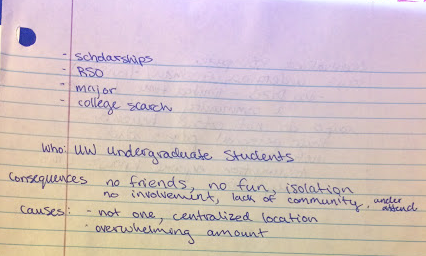 - scholarships
- RSO
- major
- college search
Who: UW undergraduate students
Consequences no friends, no fun, isolation
no involvement, lack of community, under attend
causes: - not one, centralized location
- overwhelming amount